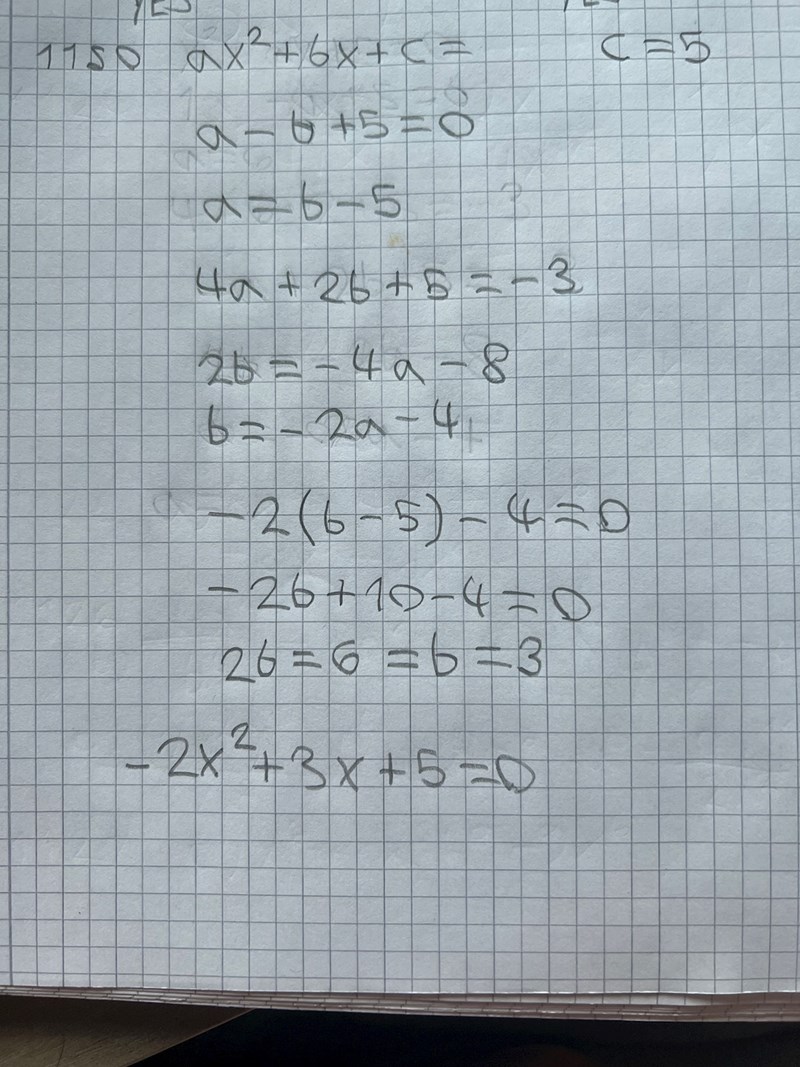 YES
1150 ax² + bx + c = c = 5
a - b + 5 = 0
a = b - 5
4a + 2b + 5 = -3
2b = -4a - 8
b = -2a - 4
-2(b - 5) - 4 = 0
-2b + 10 - 4 = 0
2b = 6 = b = 3
-2x² + 3x + 5 = 0